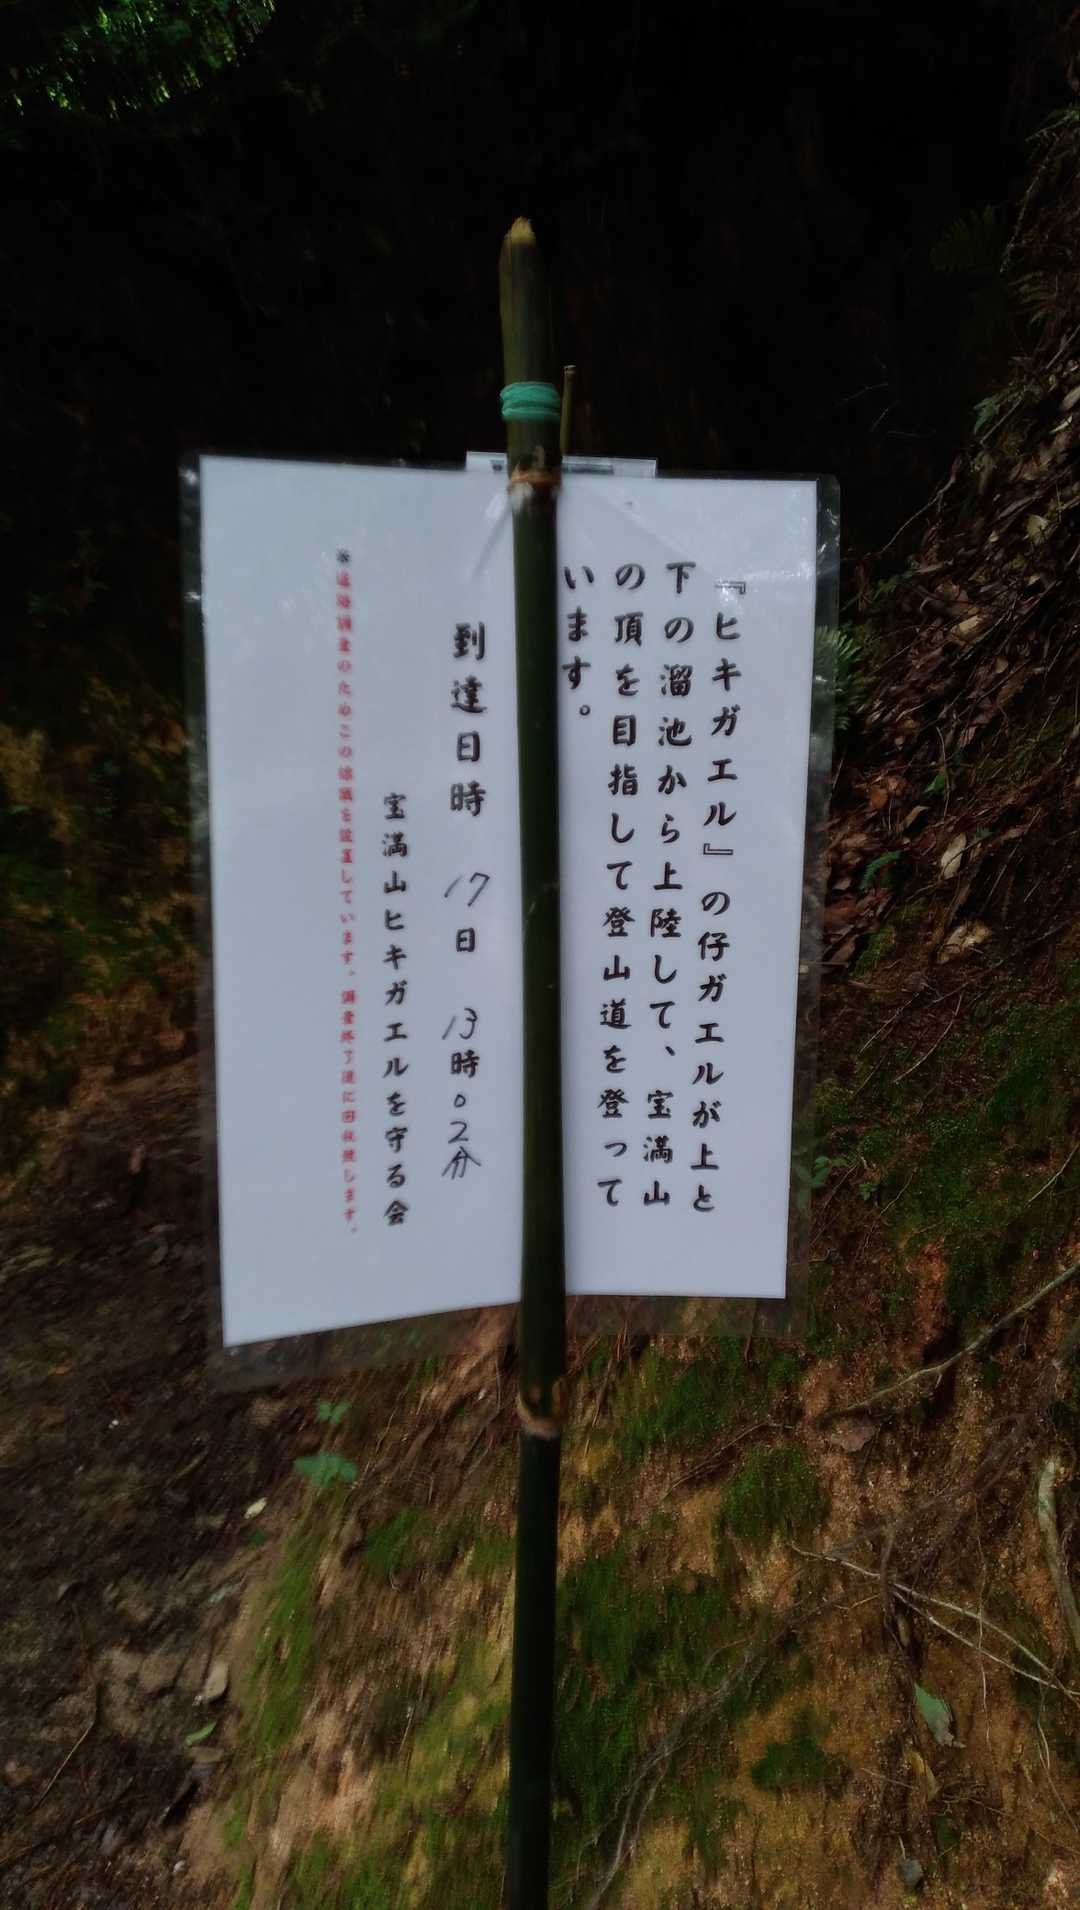 『ヒキガエル』の仔ガエルが上と
下の溜池から上陸して、宝満山
の頂を目指して登山道を登って
います。
到達日時 17日 13時02分
宝満山ヒキガエルを守る会
※追跡調査のためこの標識を設置しています。調査終了後に回収致します。